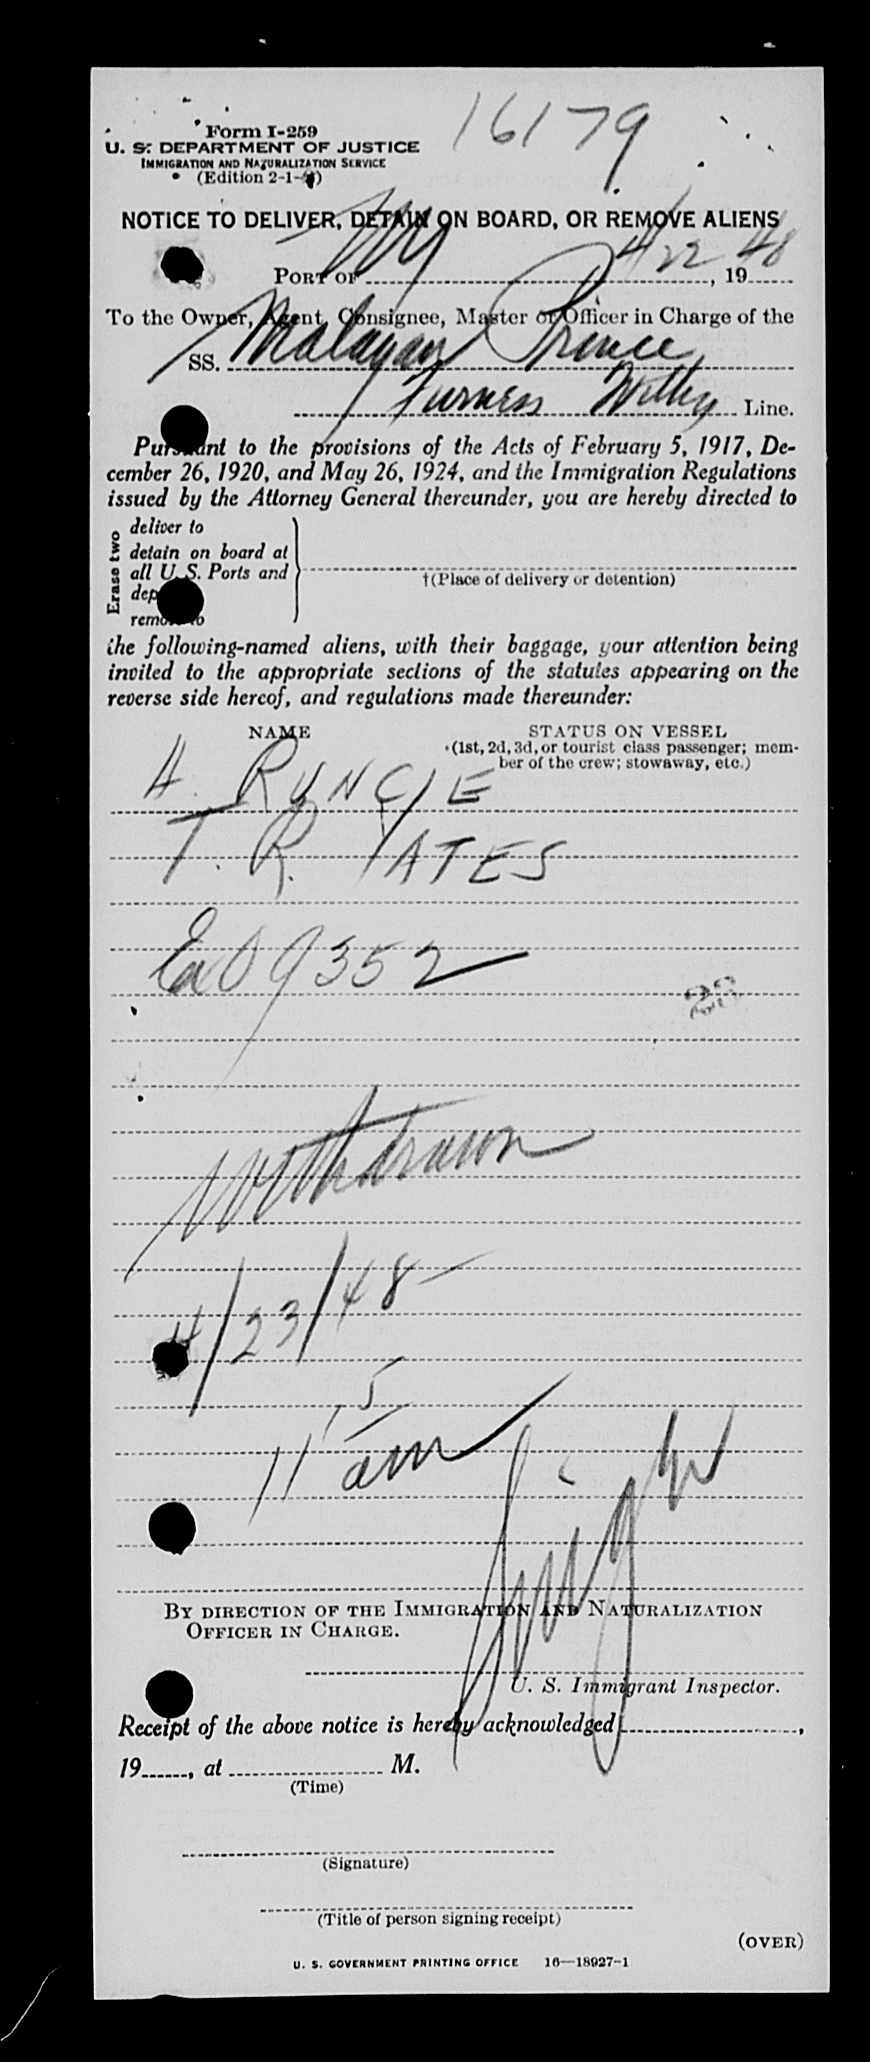 16179
Form I-259
U. S. DEPARTMENT OF JUSTICE
IMMIGRATION AND NATURALIZATION SERVICE
(Edition 2-1-)
NOTICE TO DELIVER, DETAIN ON BOARD, OR REMOVE ALIENS
PORT OF NY 4/22, 1948
To the Owner, Agent, Consignee, Master or Officer in Charge of the
SS. Malayan Prince
Furness Withy Line.
Pursuant to the provisions of the Acts of February 5, 1917, De-
cember 26, 1920, and May 26, 1924, and the Immigration Regulations
issued by the Attorney General thereunder, you are hereby directed to
Erase two
deliver to
detain on board at
all U. S. Ports and
dep
remove to
†(Place of delivery or detention)
the following-named aliens, with their baggage, your attention being
invited to the appropriate sections of the statutes appearing on the
reverse side hereof, and regulations made thereunder:
NAME
STATUS ON VESSEL
(1st, 2d, 3d, or tourist class passenger; mem-
ber of the crew; stowaway, etc.)
A. RUNCIE
T. R. YATES
ExO 9352
23
Withdrawn
4/23/48
11 15 am
BY DIRECTION OF THE IMMIGRATION AND NATURALIZATION
OFFICER IN CHARGE.
U. S. Immigrant Inspector.
Receipt of the above notice is hereby acknowledged ,
19 , at M.
(Time)
(Signature)
(Title of person signing receipt)
(OVER)
U. S. GOVERNMENT PRINTING OFFICE 16—18927-1